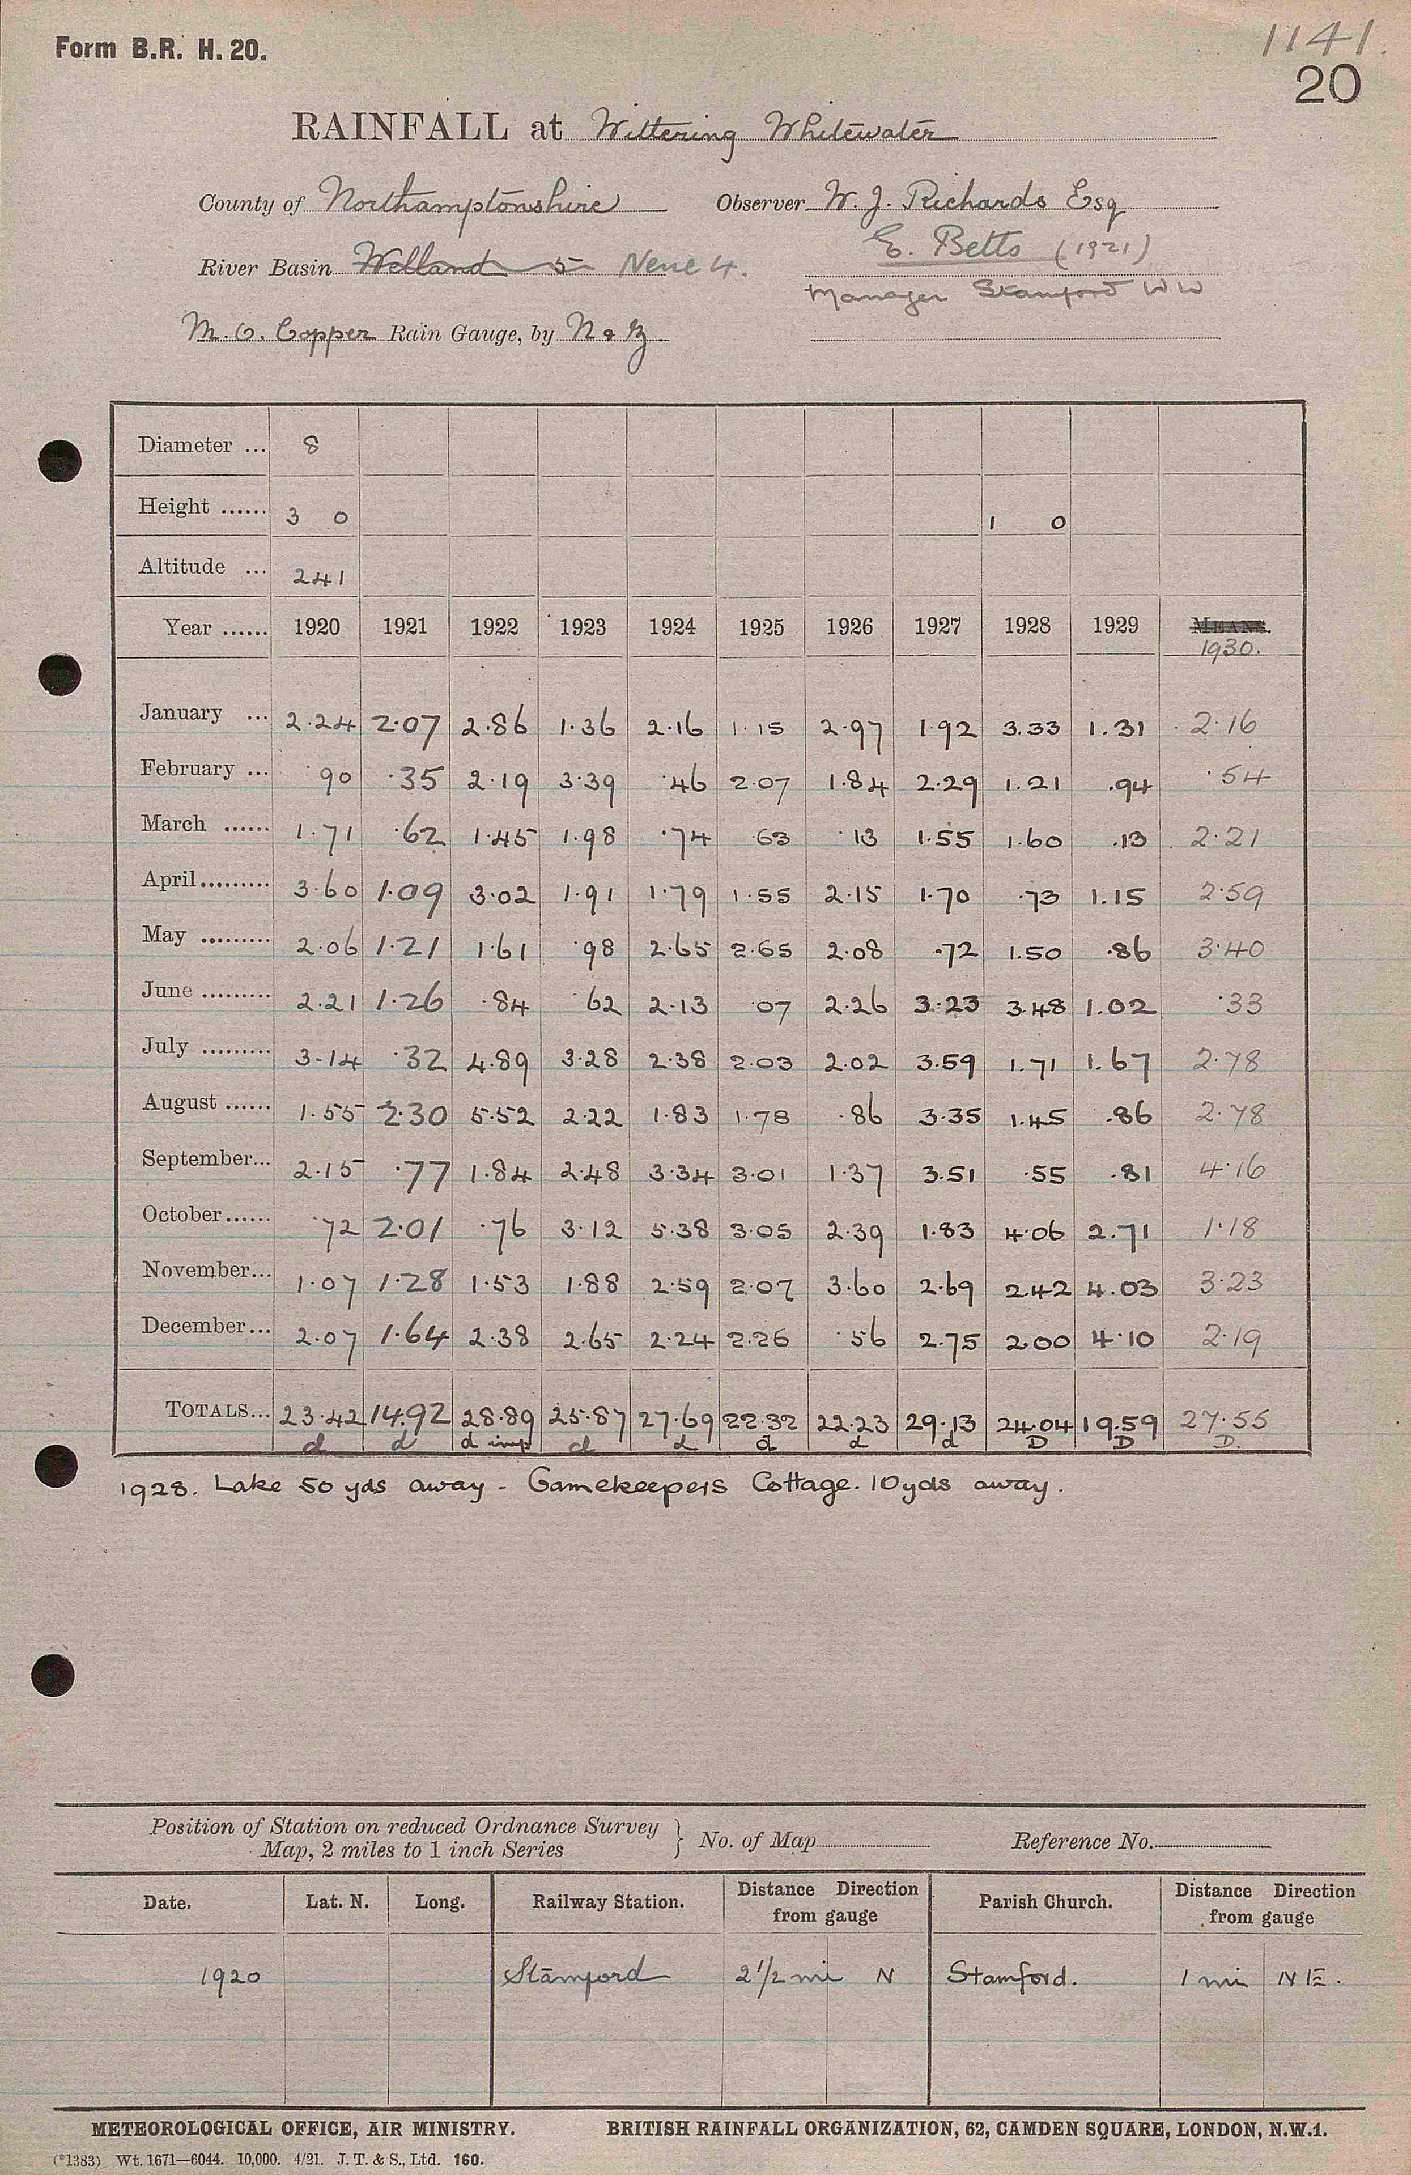 Form B.R. H. 20.
1141.
20
RAINFALL at Wittering Whitewater
County of Northamptonshire Observer W. J. Richards Esq
E. Betts (1921)
River Basin Welland 5 Nene 4.
Manager Stamford WW
M.O. Copper Rain Gauge, by N & Z
Diameter ... 8
Height ...... 3 0 1 0
Altitude ... 241
Year ...... 1920 1921 1922 1923 1924 1925 1926 1927 1928 1929 MEANS.
1930.
January ... 2.24 2.07 2.86 1.36 2.16 1.15 2.97 1.92 3.33 1.31 2.16
February ... .90 .35 2.19 3.39 .46 2.07 1.84 2.29 1.21 .94 .54
March ...... 1.71 .62 1.45 1.98 .74 .63 .13 1.55 1.60 .13 2.21
April ......... 3.60 1.09 3.02 1.91 1.79 1.55 2.15 1.70 .73 1.15 2.59
May ......... 2.06 1.21 1.61 .98 2.65 2.65 2.08 .72 1.50 .86 3.40
June ......... 2.21 1.26 .84 .62 2.13 .07 2.26 3.23 3.48 1.02 .33
July ......... 3.14 .32 4.89 3.28 2.38 2.03 2.02 3.59 1.71 1.67 2.78
August ...... 1.55 2.30 5.52 2.22 1.83 1.78 .86 3.35 1.45 .86 2.78
September... 2.15 .77 1.84 2.48 3.34 3.01 1.37 3.51 .55 .81 4.16
October...... .72 2.01 .76 3.12 5.38 3.05 2.39 1.83 4.06 2.71 1.18
November... 1.07 1.28 1.53 1.88 2.59 2.07 3.60 2.69 2.42 4.03 3.23
December... 2.07 1.64 2.38 2.65 2.24 2.26 .56 2.75 2.00 4.10 2.19
TOTALS... 23.42 14.92 28.89 25.87 27.69 22.32 22.23 29.13 24.04 19.59 27.55
d d d imp d d d d d D D D.
1928. Lake 50 yds away - Gamekeepers Cottage. 10yds away.
Position of Station on reduced Ordnance Survey
Map, 2 miles to 1 inch Series } No. of Map Reference No.
Date. Lat. N. Long. Railway Station. Distance Direction from gauge Parish Church. Distance Direction from gauge
1920 Stamford 2 1/2 mi N Stamford. 1 mi NE.
METEOROLOGICAL OFFICE, AIR MINISTRY. BRITISH RAINFALL ORGANIZATION, 62, CAMDEN SQUARE, LONDON, N.W.1.
(*1383) Wt. 1671—6044. 10,000. 4/21. J. T. & S., Ltd. 160.